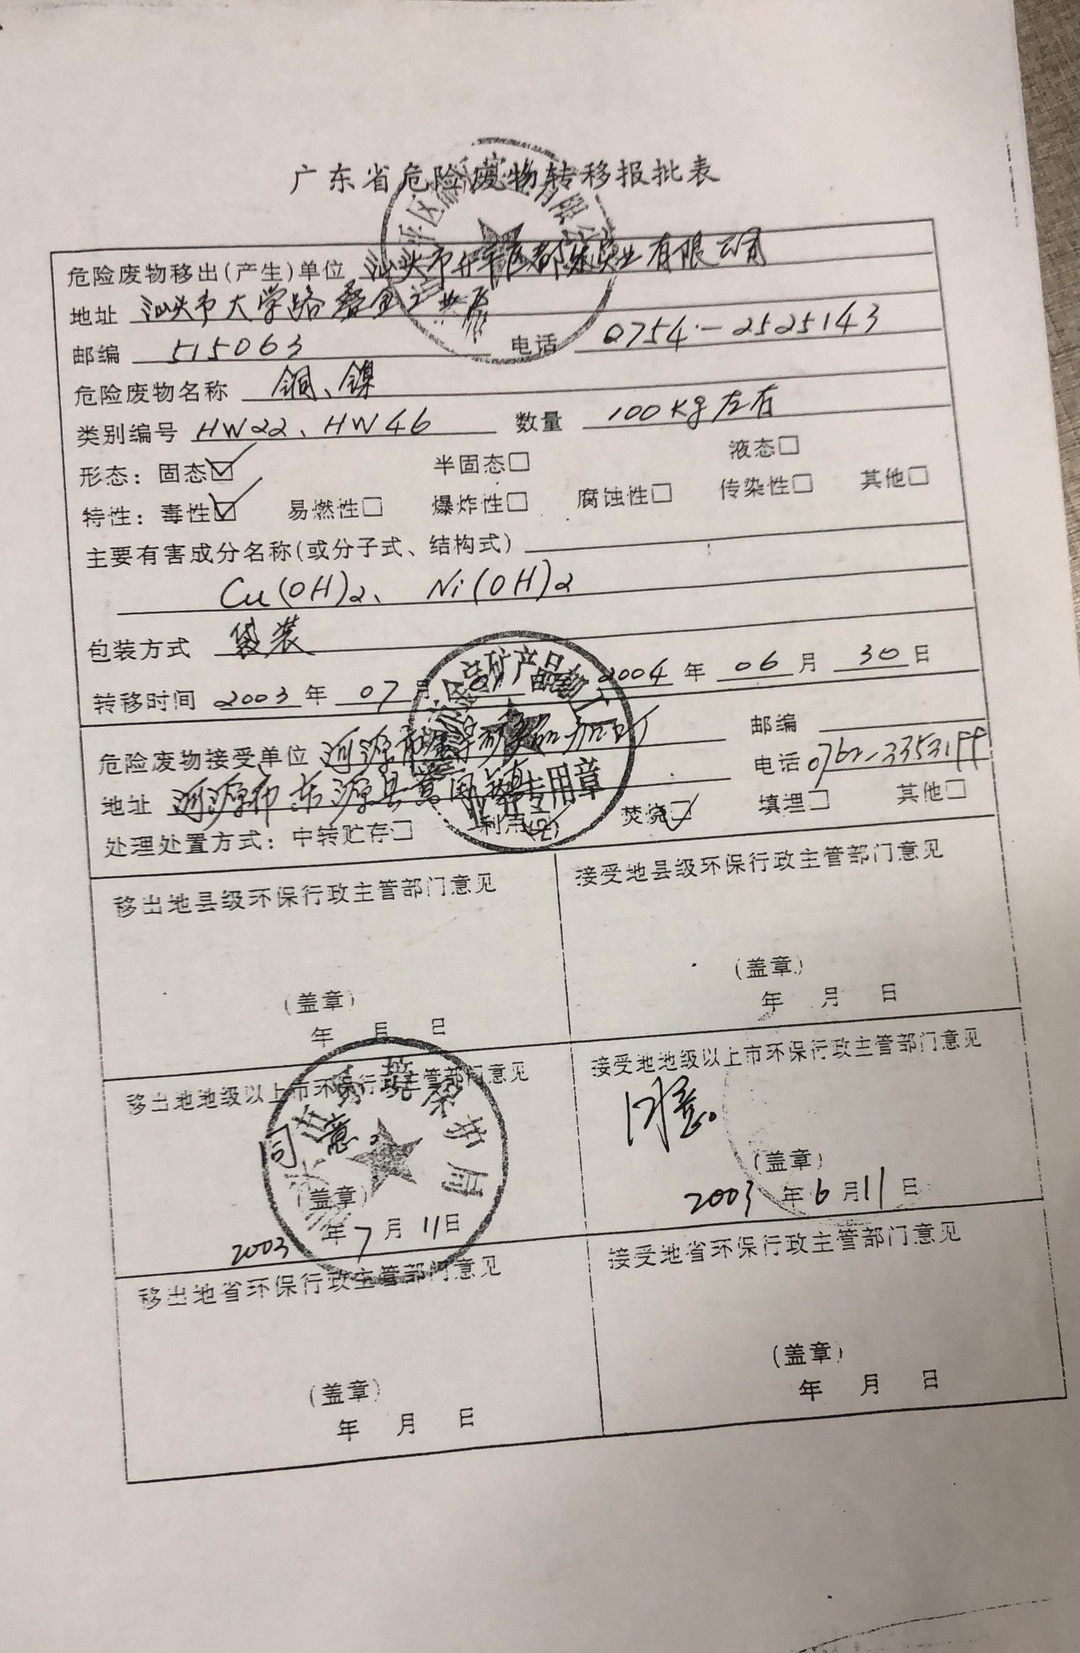 广东省危险废物转移报批表
危险废物移出(产生)单位 汕头市升平区都东实业有限公司
地址 汕头市大学路叠金工业区
邮编 515063 电话 0754-2525143
危险废物名称 铜、镍
类别编号 HW22、HW46 数量 100Kg左右
形态: 固态☑ 半固态□ 液态□
特性: 毒性☑ 易燃性□ 爆炸性□ 腐蚀性□ 传染性□ 其他□
主要有害成分名称(或分子式、结构式)
Cu(OH)2、 Ni(OH)2
包装方式 袋装
转移时间 2003年 07月 2004年 06月 30日
危险废物接受单位 河源市 加工厂 邮编
地址 河源市东源县黄田镇 电话 0762-3353199
处理处置方式: 中转贮存□ 利用 焚烧☑ 填埋□ 其他□
移出地县级环保行政主管部门意见 接受地县级环保行政主管部门意见
(盖章) (盖章)
年 月 日 年 月 日
移出地地级以上市环保行政主管部门意见 接受地地级以上市环保行政主管部门意见
同意。 同意。
(盖章) (盖章)
2003年7月11日 2003年6月11日
移出地省环保行政主管部门意见 接受地省环保行政主管部门意见
(盖章) (盖章)
年 月 日 年 月 日